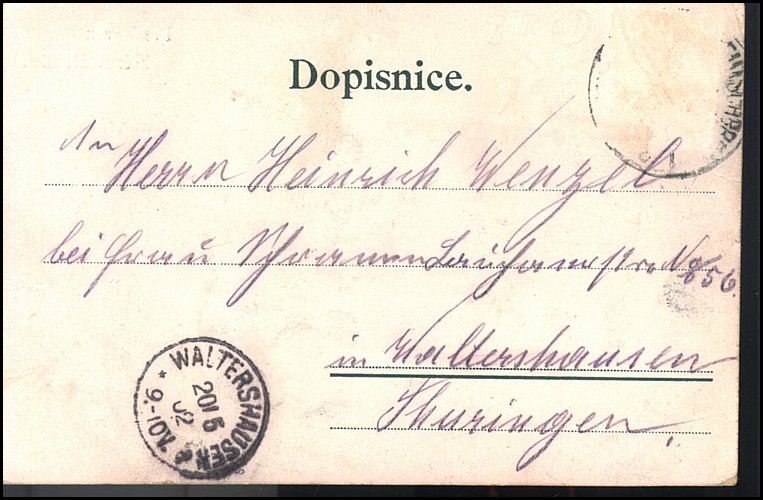 Dopisnice.
An
Herrn Heinrich Wenzel.
bei Frau Schramm No 856.
in Waltershausen
Thüringen.
WALTERSHAUSEN
20/5
02
9-10V.